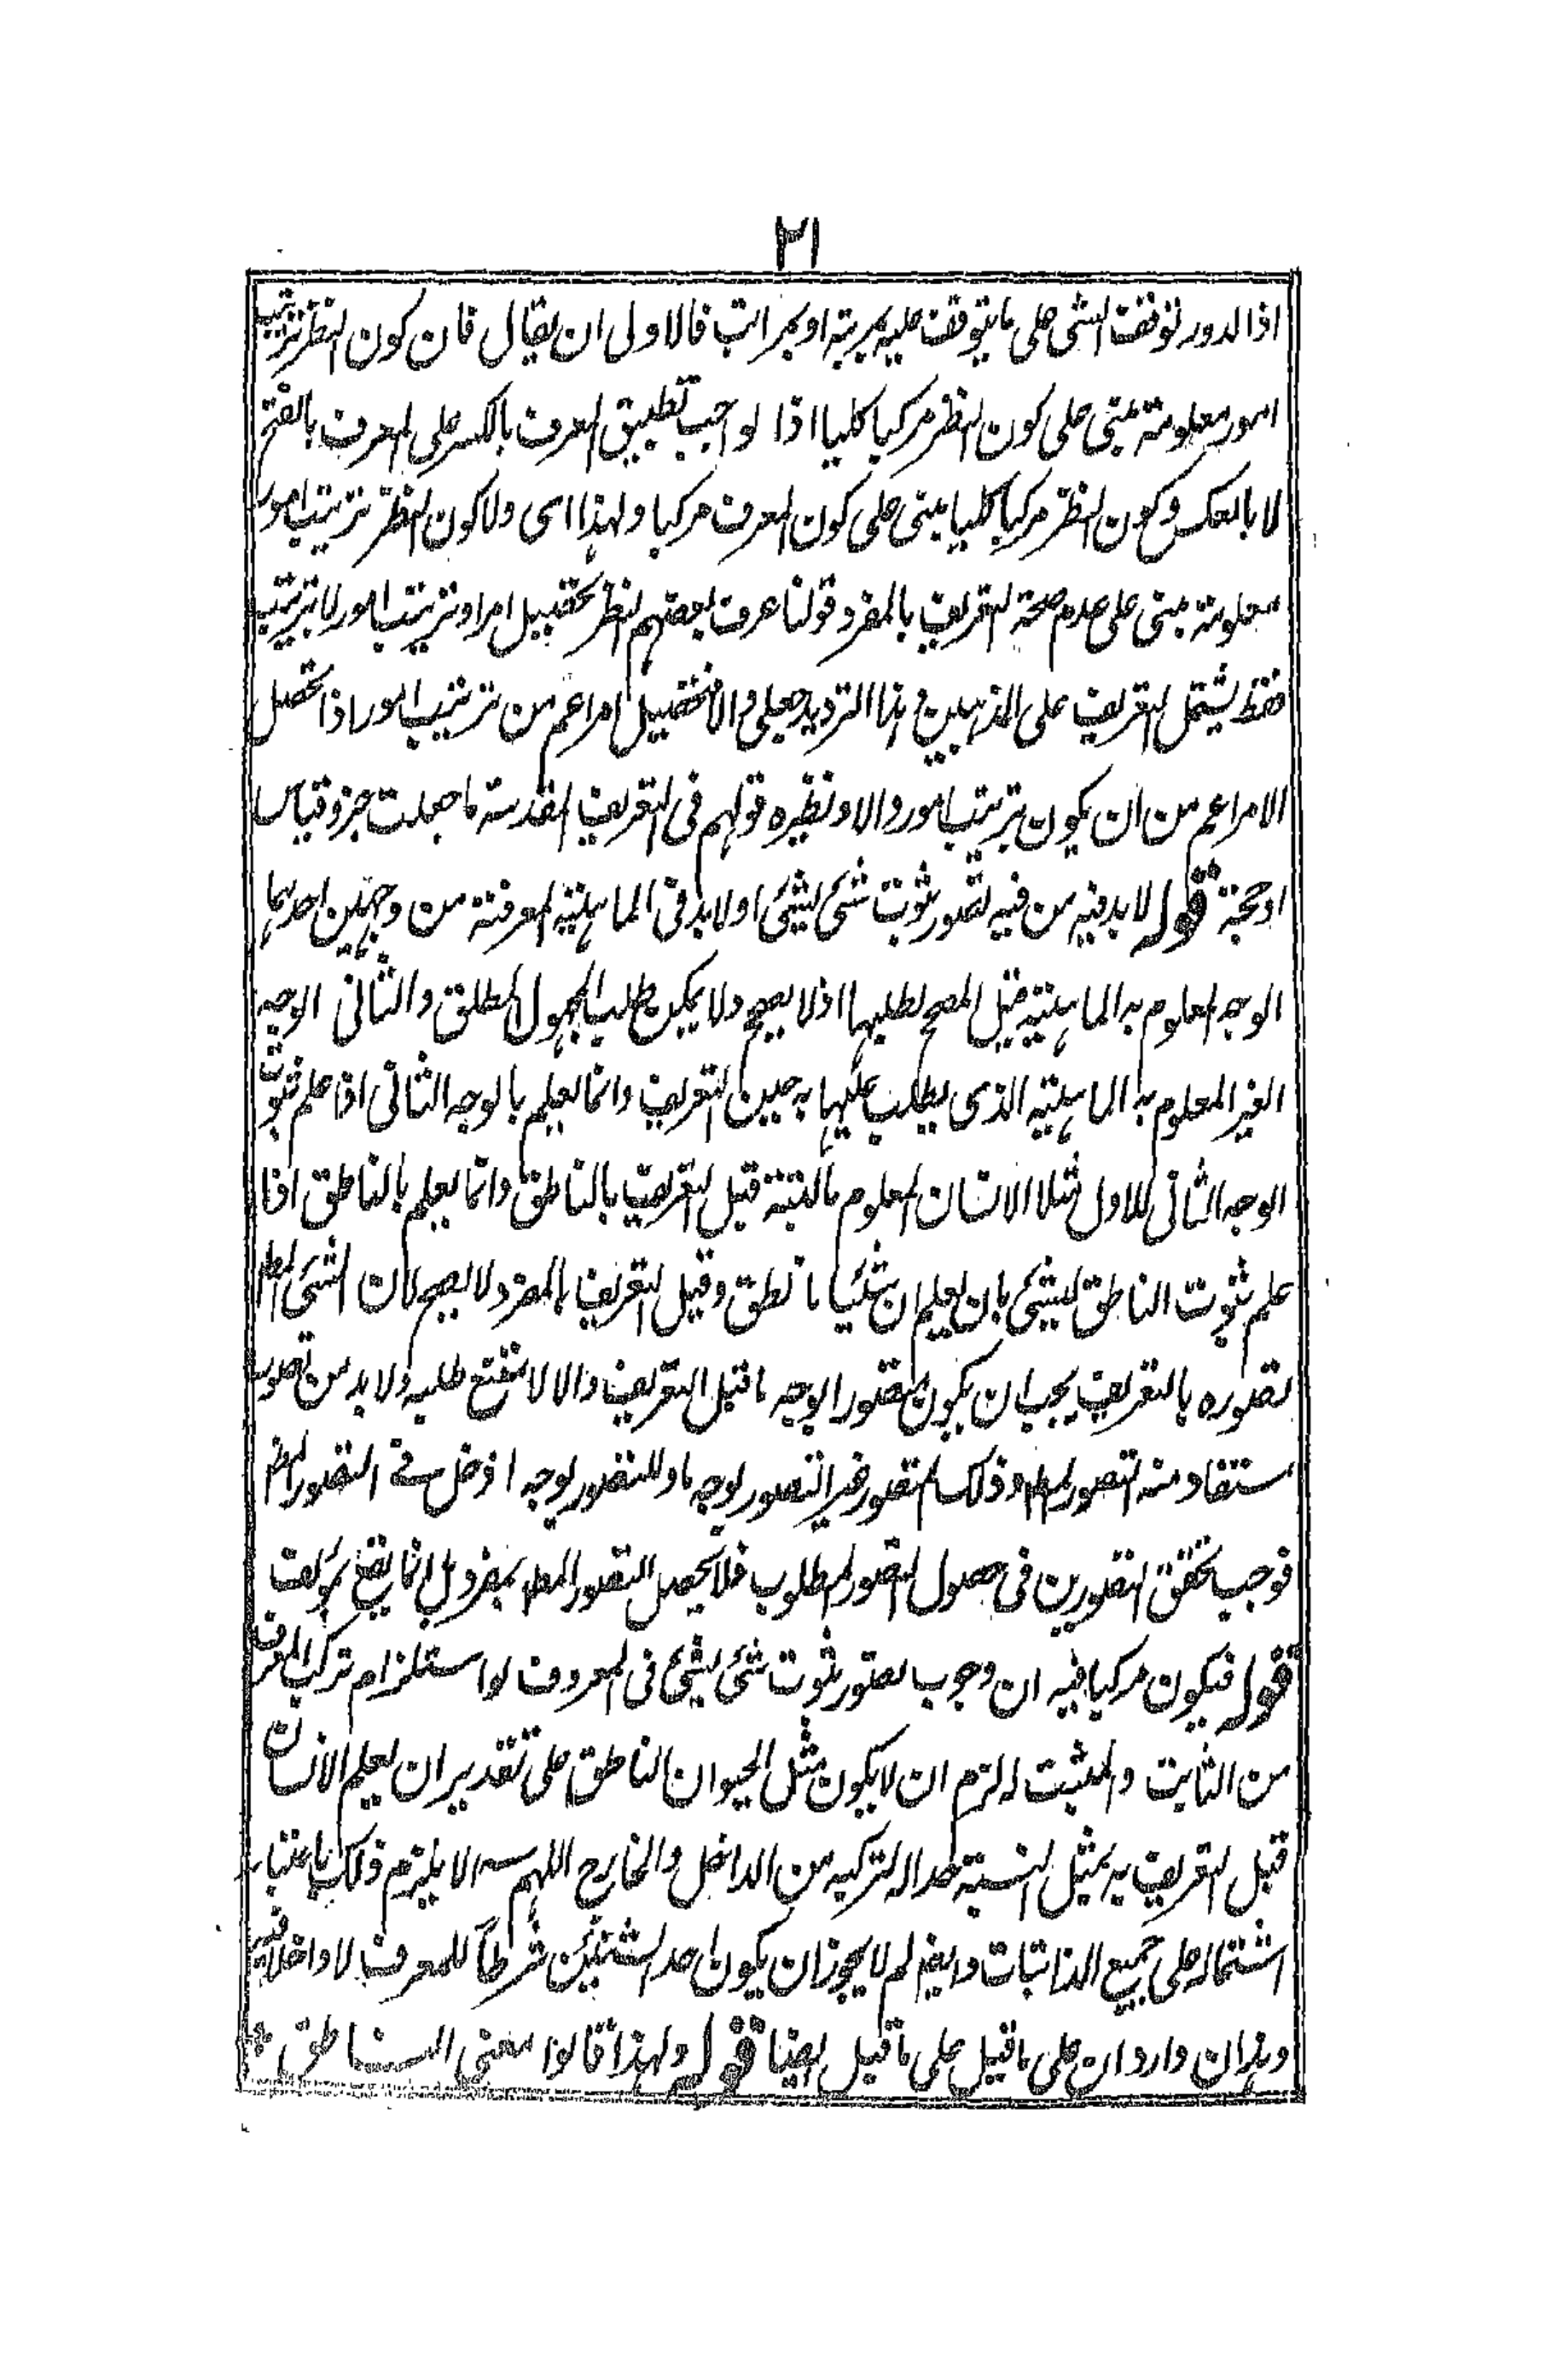 ٢١
اذا الدور توقف الشی علی ما یتوقف علیه بمرتبة او بمراتب فالاولی ان یقال فان کون النظر ترتیب
امور معلومة مبنی علی کون النظر مرکبا کلیا اذا لواجب تطبیق المعرف بالکسر علی المعرف بالفتح
لا بالعکس وکون النظر مرکبا کلیا مبنی علی کون المعرف مرکبا ولهذا ای ولاکون النظر ترتیب امور
معلومة مبنی علی عدم صحة التعریف بالمفرد قولنا عرف بعضهم النظر بتحصیل امر او ترتیب امور لا بترتیب
فقط یشتمل التعریف علی المذهبین وهذا التردید جعلی والا فتحصیل امر اعم من ترتیب امور اذا تحصیل
الامر اعم من ان یکون بترتیب امور والا ونظیره قولهم فی التعریف المقدمة ما جعلت جزو قیاس
او حجة قوله لا بد فیه من فیه تصور ثبوت شئ لشئ او لا بد فی الماهیة المعرفة من وجهین احدهما
الوجه المعلوم به الماهیة قبل المصح لطلبها اذ لا یصح ولا یمکن طلب المجهول المطلق والثانی الوجه
الغیر المعلوم به الماهیة الذی یطلب علیها به حین التعریف وانما یعلم بالوجه الثانی اذا علم ثبوت
الوجه الثانی للاول مثلا الانسان المعلوم قبل التعریف بالناطق وانما یعلم بالناطق اذا
علم ثبوت الناطق لشئ بان یعلم ان شئیا ما نطق وقیل التعریف بالمفرد لا یصح لان الشئ المط
تصوره بالتعریف یجب ان یکون متصور الوجه ما قبل التعریف والا لامتنع طلبه ولا بد من تصور
ستفاد منه التصور المط وذلک التصور غیر التصور لوجه ما وللتصور لوجه ا دخل فی التصور المط
فوجب تحقق التصورین فی حصول التصور المطلوب فلا یحصل التصور المط بمفرد بل انما یقع بمؤلف
قوله فیکون مرکبا فیه ان وجوب تصور ثبوت شئ لشئ فی المعروف لو استلزام ترکب المعرف
من الثابت والمثبت له لزم ان لا یکون مثل الحیوان الناطق علی تقدیر ان یعلم الانسان
قبل التعریف به بمثل النسبة حدا له لترکبه من الداخل والخارج اللهم الا یلزم ذلک باعتبار
اشتماله علی جمیع الذاتیات وایضا لم لا یجوز ان یکون احد الشئین شرطاً للمعرف لا داخلا فیه
وهذان واردان علی ما قبل علی ما قیل ایضا قوله ولهذا قالوا معنی الناطق